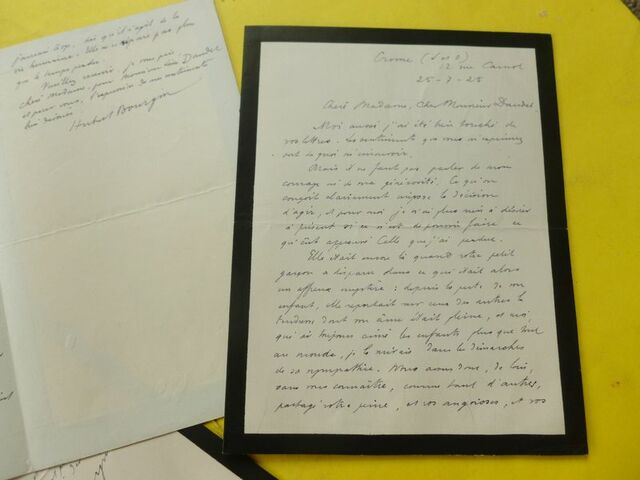 j'aurais
qu'il s'agit de la
vie humaine. Elle ne se répare pas plus
que le temps perdu.
Veuillez recevoir, je vous prie,
chère Madame, pour Monsieur Léon Daudet
et pour vous, l'expression de mes sentiments
bien dévoués
Hubert Bourgin
Crosne (S et O)
12 rue Carnot
25-7-25
Chère Madame, Cher Monsieur Daudet,
Moi aussi j'ai été bien touché de
vos lettres. Les sentiments que vous m'exprimez
ont de quoi m'émouvoir.
Mais il ne faut pas parler de mon
courage ni de ma générosité. Ce qu'on
conçoit clairement impose la décision
d'agir, et pour moi je n'ai plus rien à désirer
à présent si ce n'est de pouvoir faire ce
qu'eût approuvé Celle que j'ai perdue.
Elle était encore là quand votre petit
garçon a disparu dans ce qui était alors
un affreux mystère : depuis la perte de son
enfant, elle reportait sur ceux des autres la
tendresse dont son âme était pleine, et moi,
qui ai toujours aimé les enfants plus que tout
au monde, je la suivais dans les démarches
de sa sympathie. Nous avons donc, de loin,
sans vous connaître, comme tant d'autres,
partagé votre peine, et vos angoisses, et vos